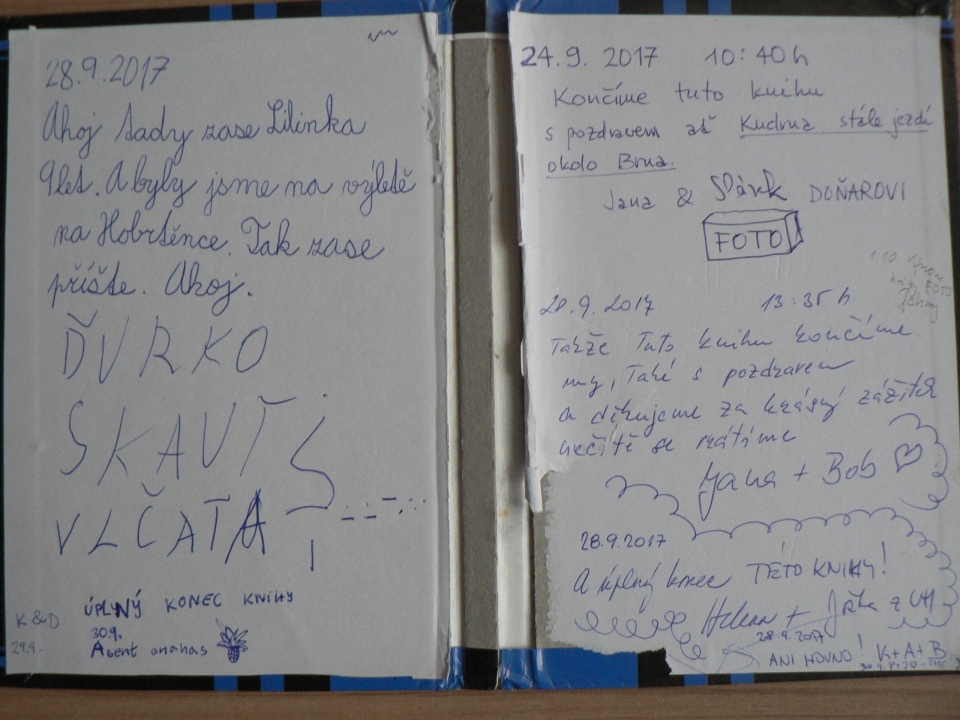 28.9.2017
Ahoj tady zase Lilinka
9let. A byly jsme na výletě
na Hobrtěnce. Tak zase
příšte. Ahoj.
ĎVRKO
SKAUTI
VLČATA
ÚPLNÝ KONEC KNIHY
30.9.
Agent ananas
K&D
29.9.
24.9. 2017 10:40h
Končíme tuto knihu
s pozdravem ať Kudrna stále jezdí
okolo Brna.
Jana & Slávk DOŇAROVI
FOTO
28.9.2017 13:35 h
Takže Tuto knihu končíme
my, Také s pozdravem
a děkujeme za krásný zážitek
určitě se vrátíme
Jana + Bob
28.9.2017
A úplný konec TÉTO KNIHY!
Helena + Jirka z
28.9.2017
ANI HOVNO! K+A+B